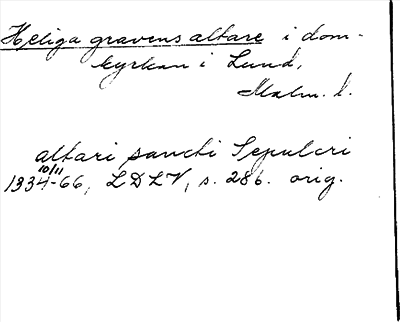 Heliga gravens altare i dom-
kyrkan i Lund,
Malm. l.
altari sancti Sepulcri
10/11
1334-66, LDLV, s. 286. orig.